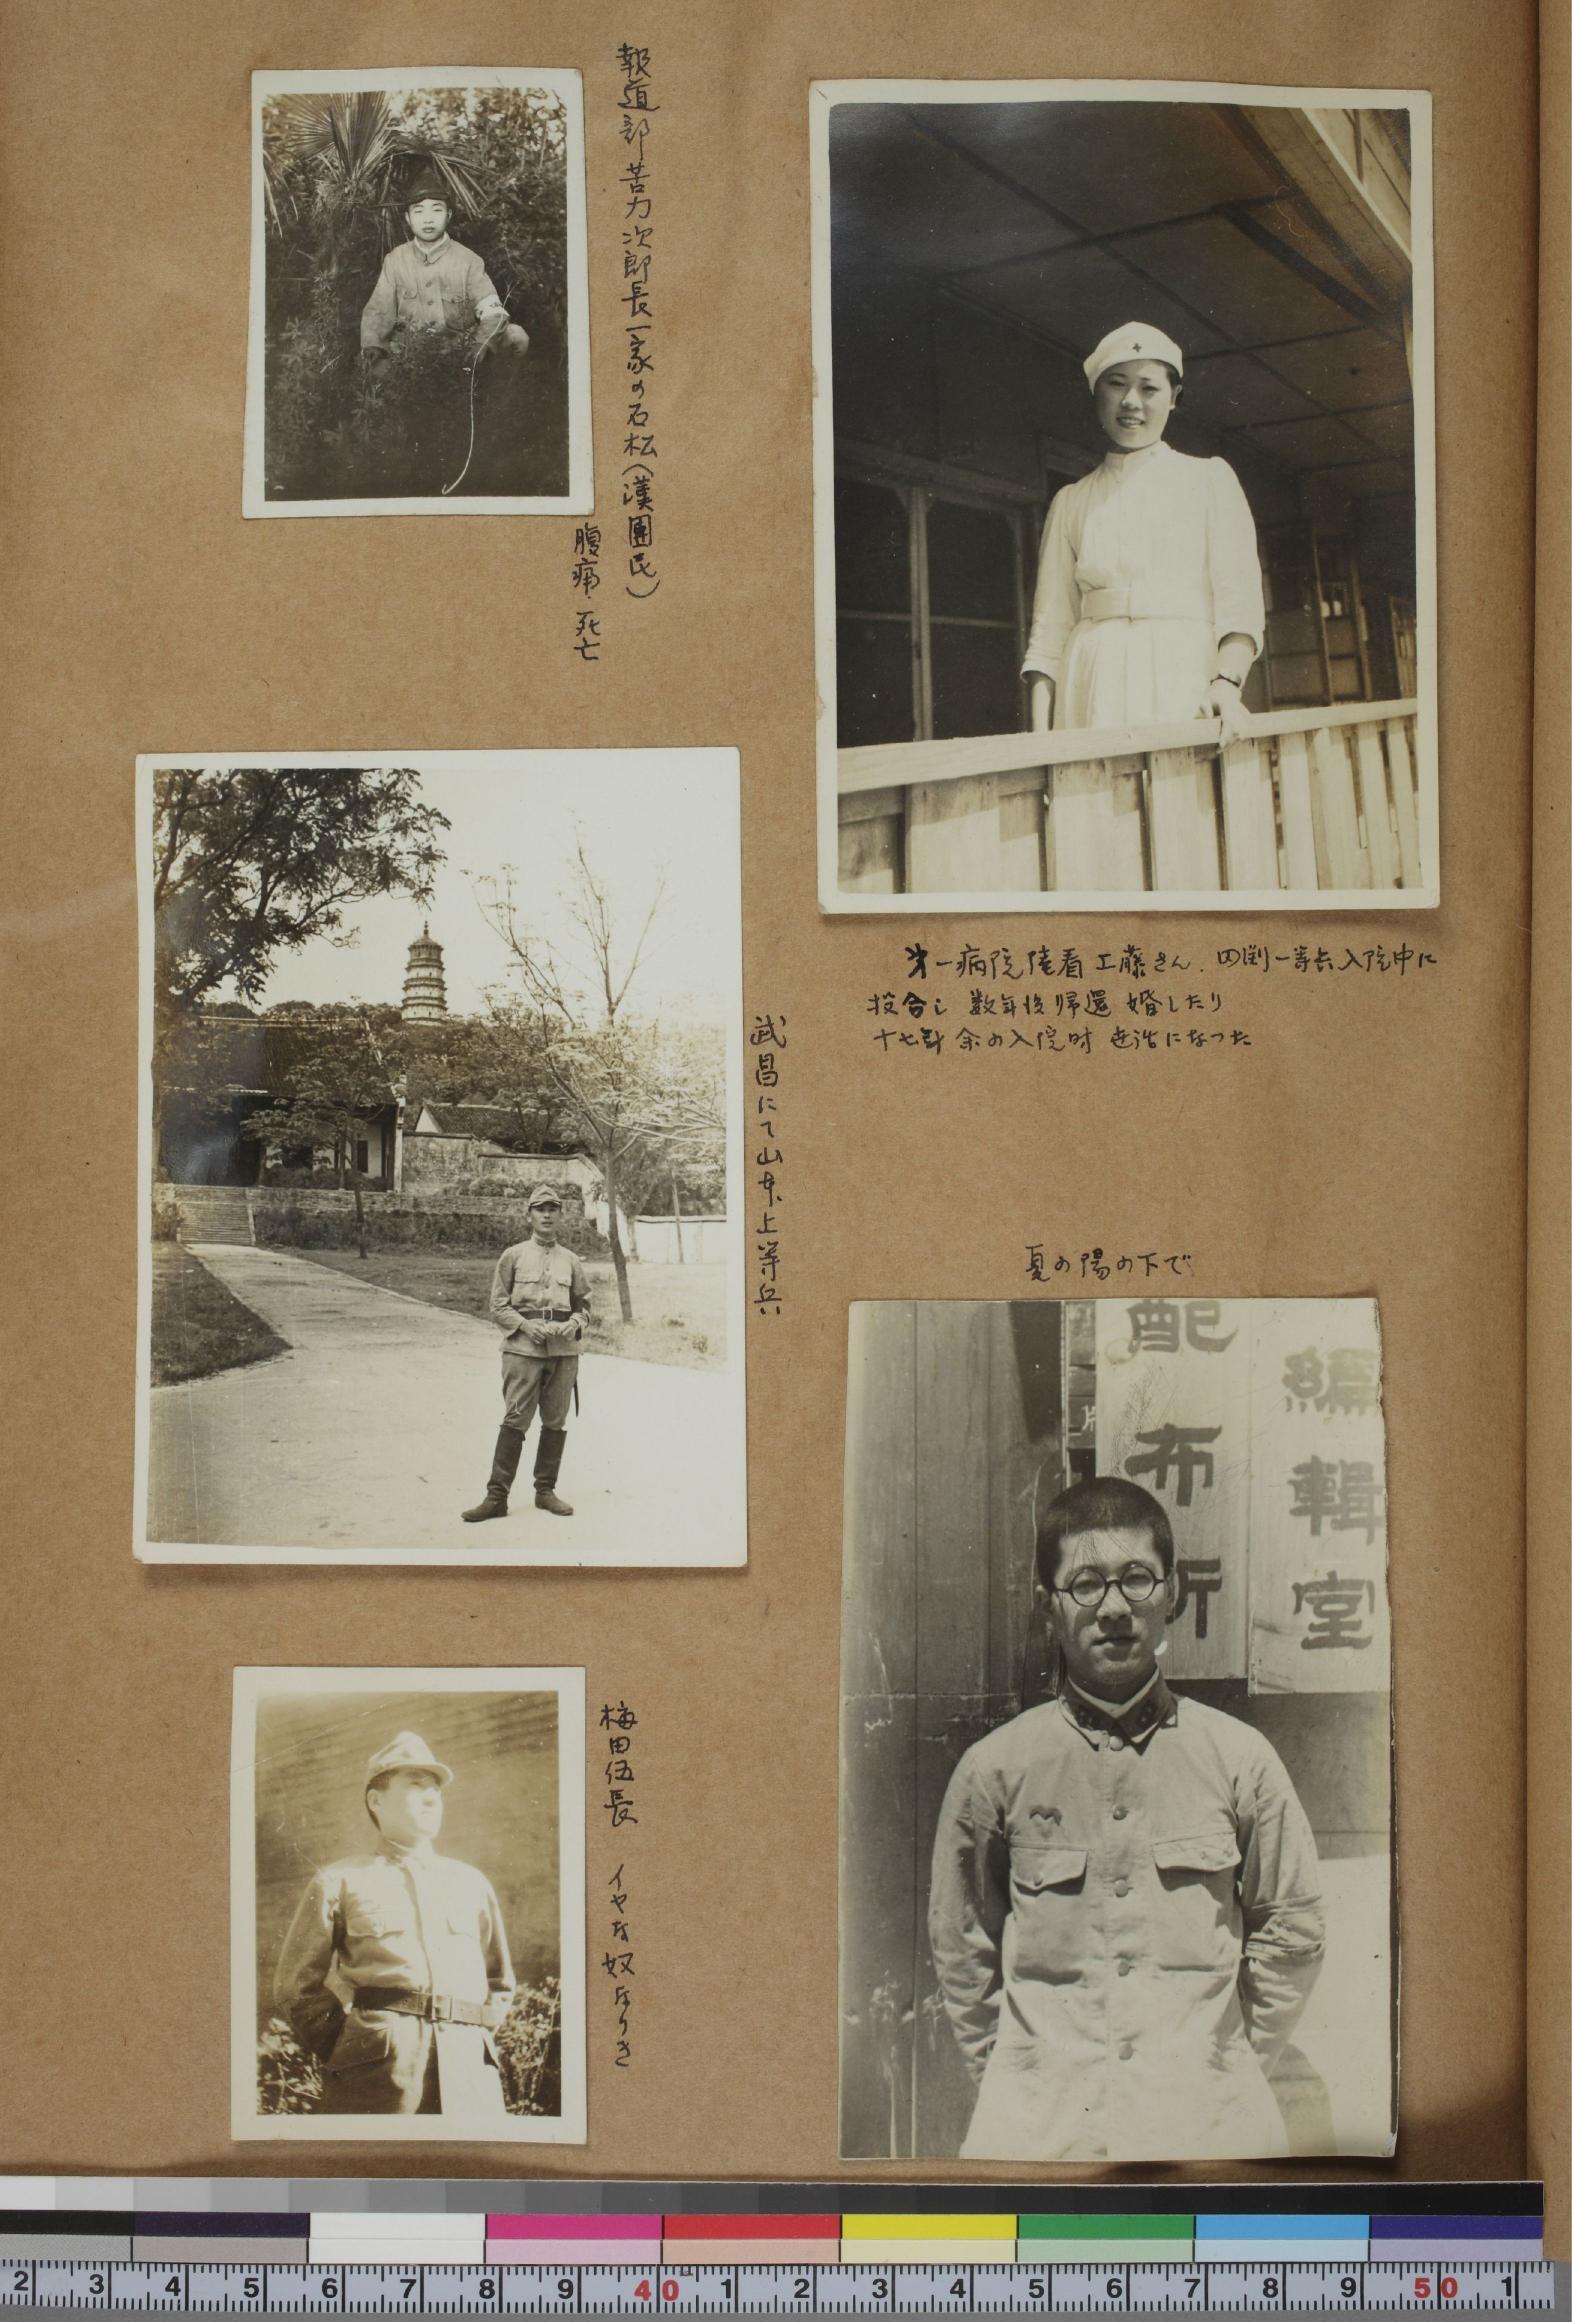 報道部苦力次郎長一家の石松(漢團民)
腹痛・死亡
第一病院陸看工藤さん、四剛一等兵入院中に
投合し 数年後帰還 婚したり
十七年 余の入院時 世話になった
武昌にて山本上等兵
夏の陽の下で
配布所
編輯室
梅田伍長 イヤな奴なりき
2 3 4 5 6 7 8 9 40 1 2 3 4 5 6 7 8 9 50 1